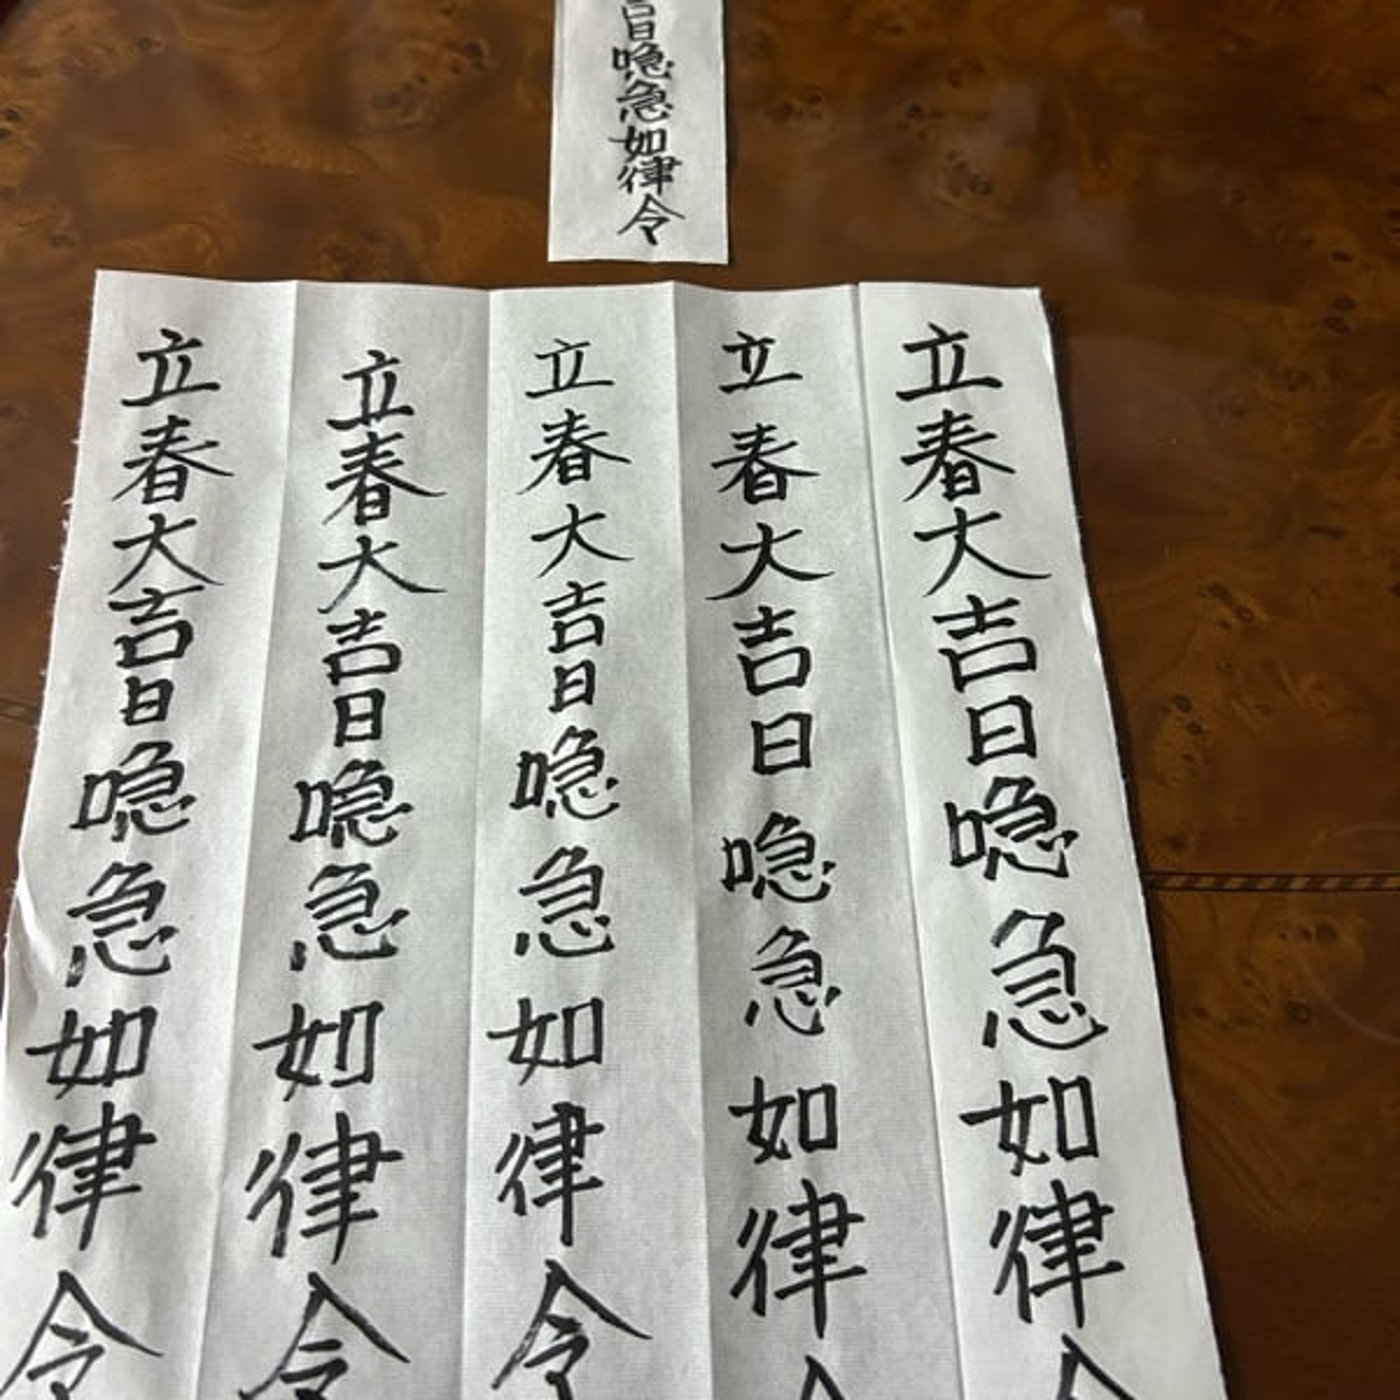 日喼急如律令
立春大吉日喼急如律
立春大吉日喼急如律
立春大吉日喼急如律令
立春大吉日喼急如律令
立春大吉日喼急如律令